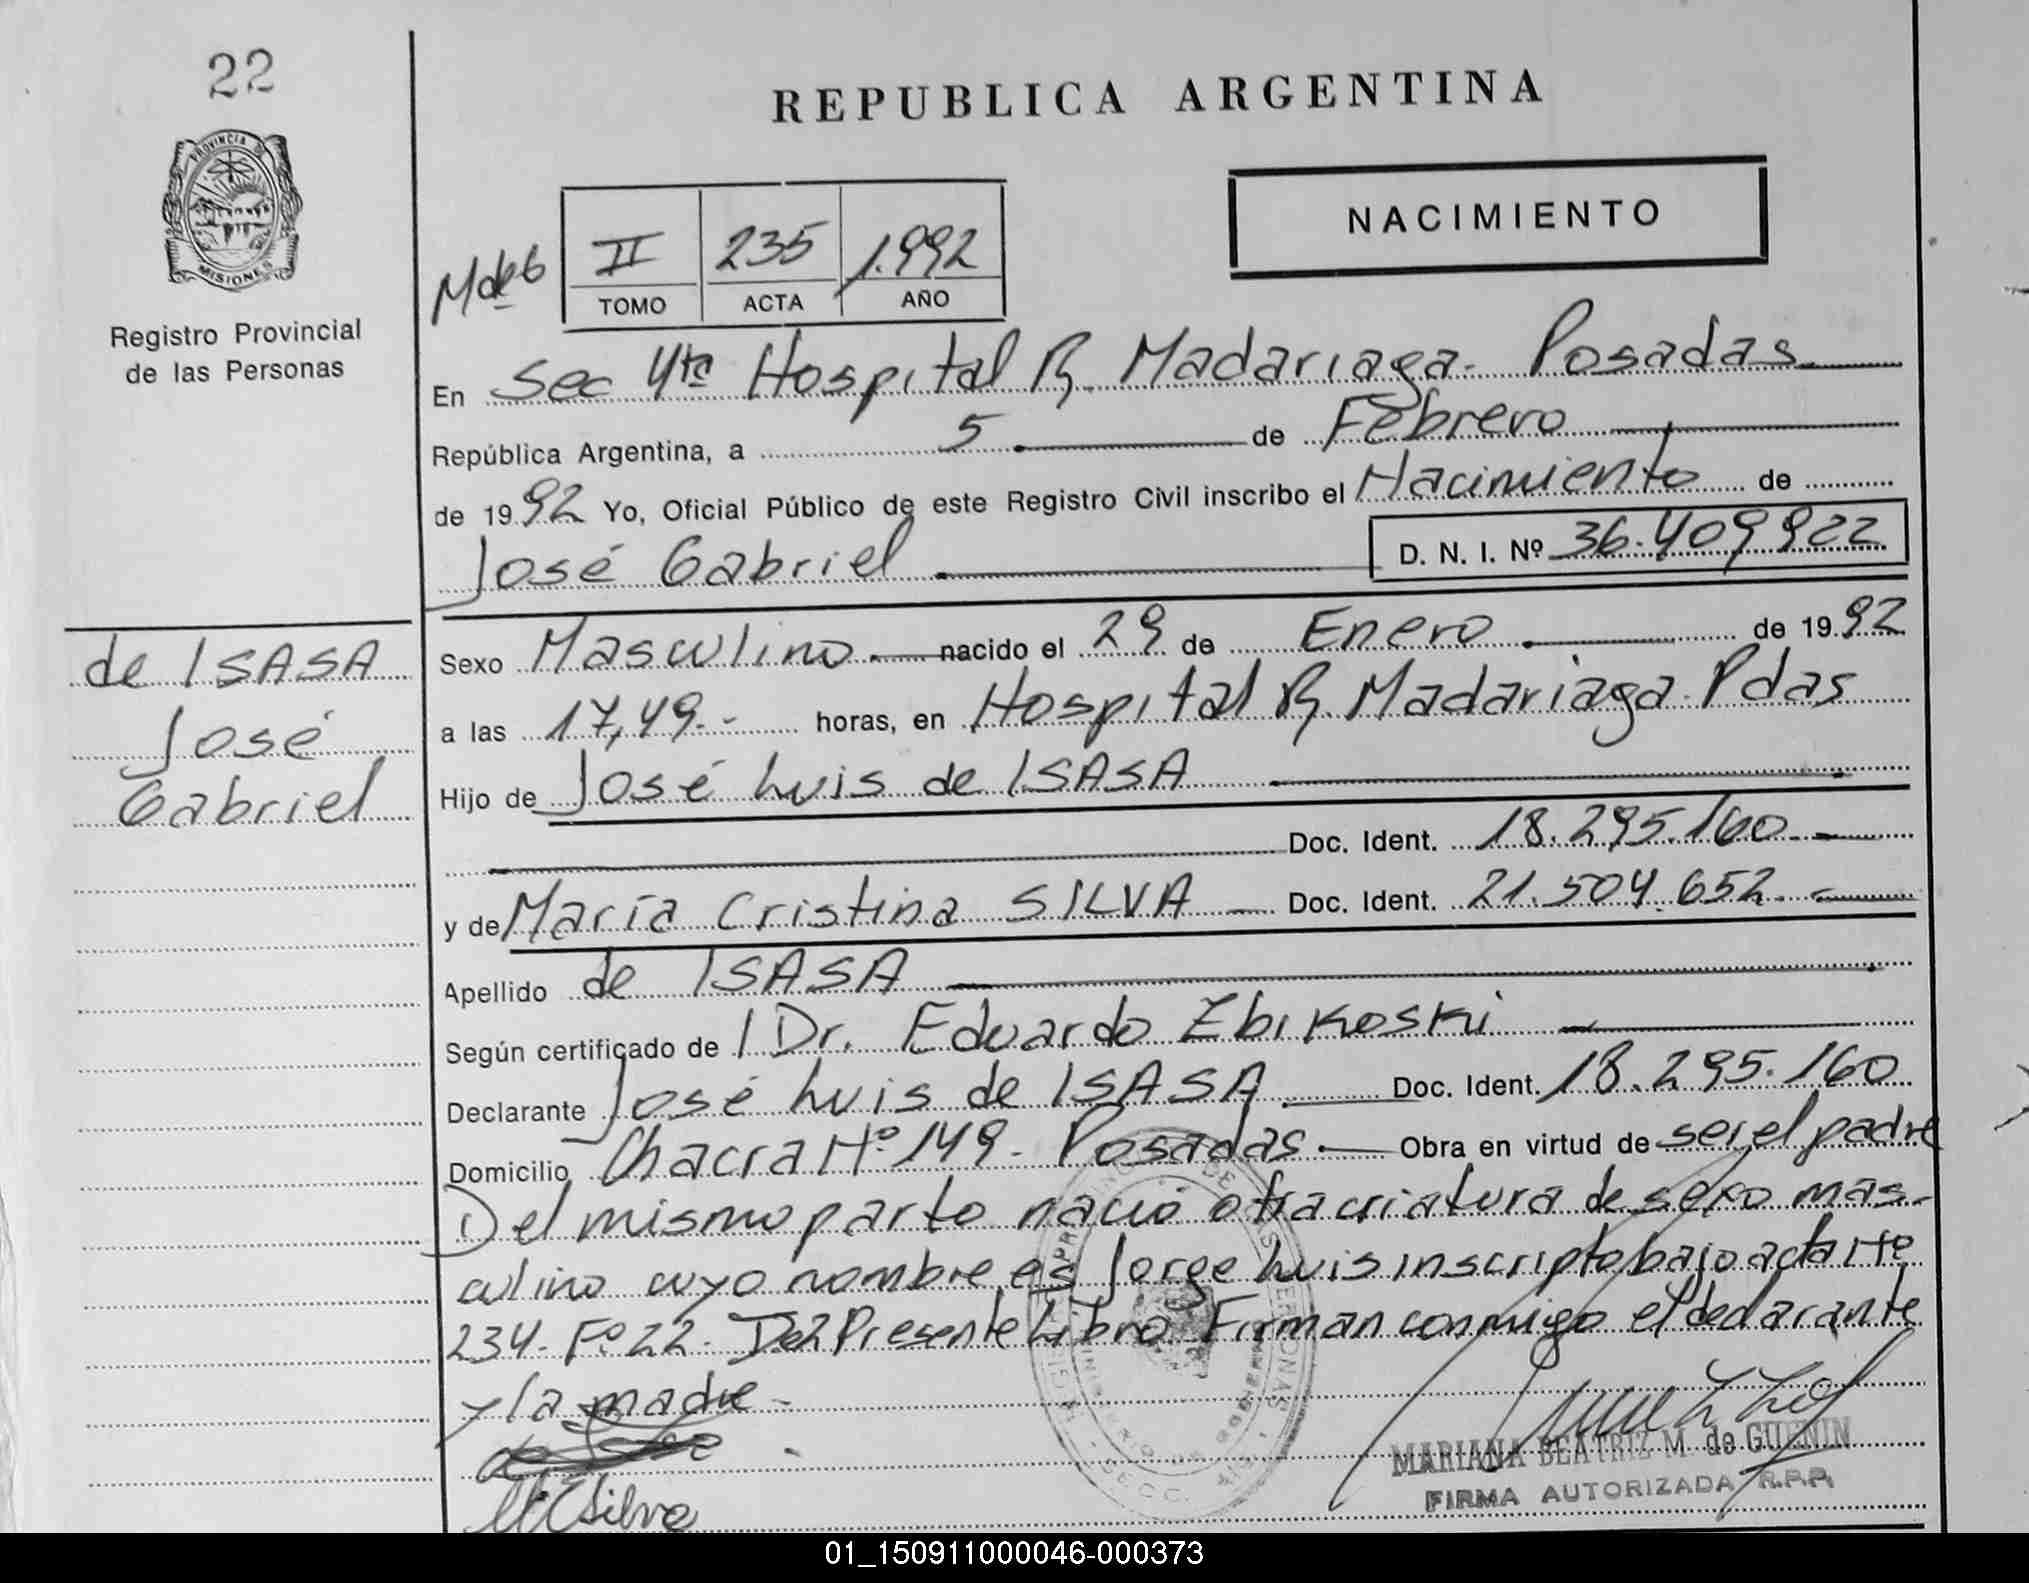 22
PROVINCIA DE
MISIONES
Registro Provincial
de las Personas
de ISASA
José
Gabriel
REPUBLICA ARGENTINA
NACIMIENTO
II 235 1.992
TOMO ACTA AÑO
En Sec 4ta Hospital R. Madariaga - Posadas
República Argentina, a 5 de Febrero
de 1992 Yo, Oficial Público de este Registro Civil inscribo el Nacimiento de
José Gabriel D. N. I. Nº 36.409922
Sexo Masculino nacido el 29 de Enero de 1992
a las 17,49.- horas, en Hospital R. Madariaga - Pdas
Hijo de José Luis de ISASA
Doc. Ident. 18.295.160
y de María Cristina SILVA Doc. Ident. 21.504.652.
Apellido de ISASA
Según certificado de Dr. Eduardo Zbikoski
Declarante José Luis de ISASA Doc. Ident. 18.295.160
Domicilio Chacra Nº 149 - Posadas Obra en virtud de ser el padre
Del mismo parto nació otra criatura de sexo mas-
culino cuyo nombre es Jorge Luis inscripto bajo acta Nº
234. Fº 22. Del Presente Libro Firman conmigo el declarante
y la madre -
MARIANA BEATRIZ M. de GUENIN
FIRMA AUTORIZADA R.P.P.
Silva
01_150911000046-000373